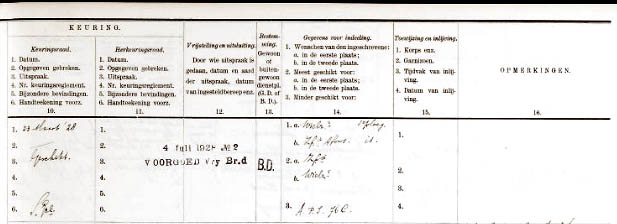 KEURING.
Keuringsraad.
1. Datum.
2. Opgegeven gebreken.
3. Uitspraak.
4. Nr. keuringsreglement.
5. Bijzondere bevindingen.
6. Handteekening voorz.
10.
Herkeuringsraad.
1. Datum.
2. Opgegeven gebreken.
3. Uitspraak.
4. Nr. keuringsreglement.
5. Bijzondere bevindingen.
6. Handteekening voorz.
11.
Vrijstelling en uitsluiting.
Door wie uitspraak is
gedaan, datum en aard
der uitspraak, datum
van ingesteld beroep enz.
12.
Bestem-
ming.
Gewoon
of
buiten-
gewoon
dienstpl.
(G.D. of
B.D.).
13.
Gegevens voor indeeling.
1. Wenschen van den ingeschrevene:
a. in de eerste plaats;
b. in de tweede plaats.
2. Meest geschikt voor:
a. in de eerste plaats;
b. in de tweede plaats.
3. Minder geschikt voor:
14.
Toewijzing en inlijving.
1. Korps enz.
2. Garnizoen.
3. Tijdvak van inlij-
ving.
4. Datum van inlij-
ving.
15.
OPMERKINGEN.
16.
1. 23 Maart '28
2.
3.
4.
5.
6.
1.
2.
3.
4.
5.
6.
4 Juli 1928 No 2
VOORGOED Vry Br.d
B.D.
1. a.
b.
2. a.
b.
3.
1.
2.
3.
4.